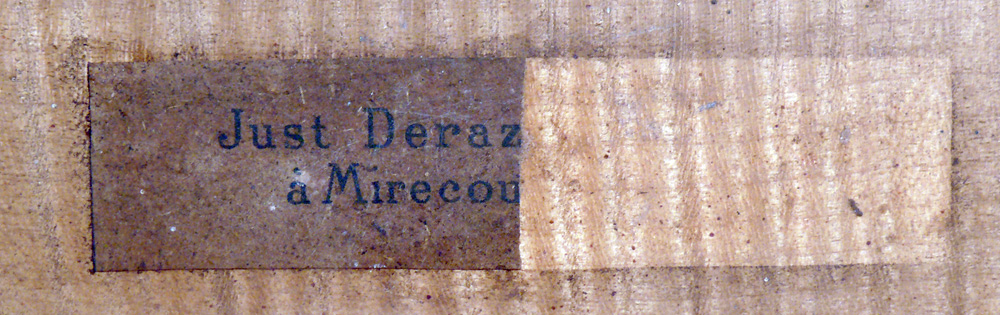 Just Deraz
à Mirecou